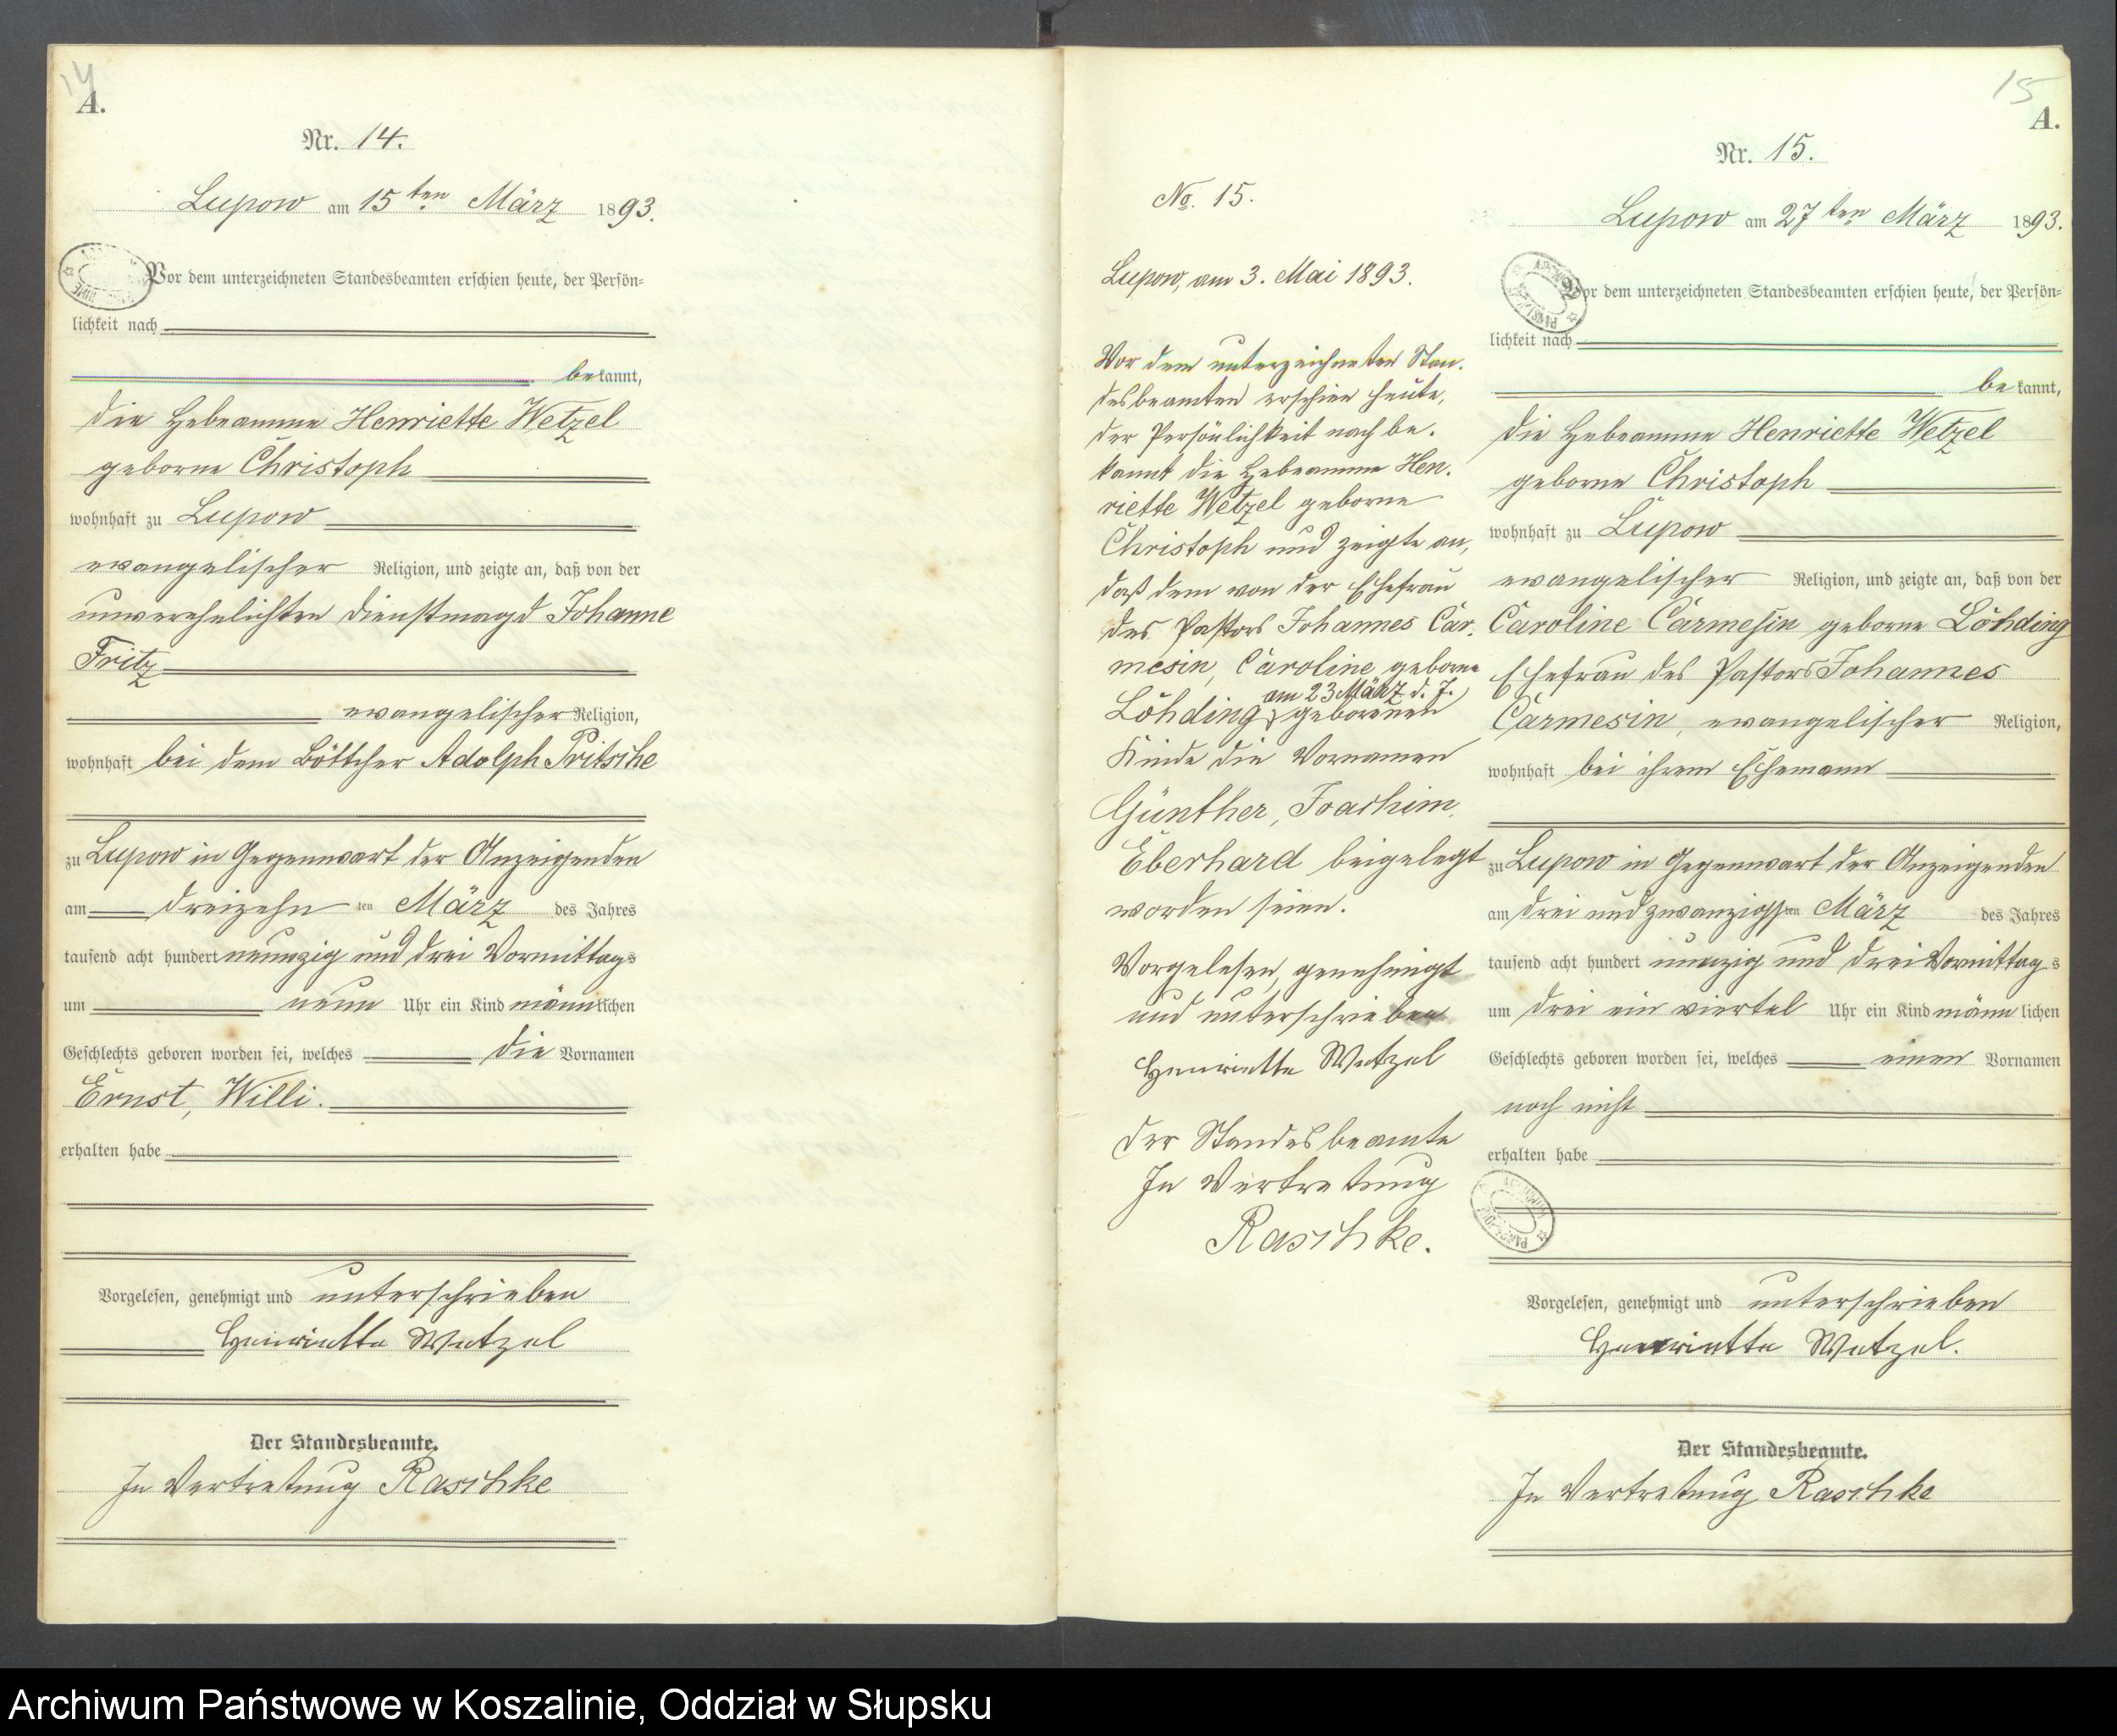 14
A.
Nr. 14.
Lupow am 15ten März 1893.
Vor dem unterzeichneten Standesbeamten erschien heute, der Persön-
lichkeit nach
bekannt,
die Hebeamme Henriette Wetzel
geborne Christoph
wohnhaft zu Lupow
evangelischer Religion, und zeigte an, daß von der
unverehelichten Dienstmagd Johanne
Fritz
evangelischer Religion,
wohnhaft bei dem Böttcher Adolph Pritsche
zu Lupow in Gegenwart der Anzeigenden
am dreizehn ten März des Jahres
tausend acht hundert neunzig und drei Vormittags
um neun Uhr ein Kind männlichen
Geschlechts geboren worden sei, welches die Vornamen
Ernst, Willi.
erhalten habe
Vorgelesen, genehmigt und unterschrieben
Henriette Wetzel
Der Standesbeamte.
In Vertretung Raschke
No. 15.
Lupow, am 3. Mai 1893.
Vor dem unterzeichneten Stan-
desbeamten erschien heute,
der Persönlichkeit nach be-
kannt die Hebeamme Hen-
riette Wetzel geborne
Christoph und zeigte an,
daß dem von der Ehefrau
des Pastors Johannes Car-
mesin, Caroline geborne
am 23 März d. J.
Löhding, geborenen
Kinde die Vornamen
Günther, Joachim,
Eberhard beigelegt
worden seien.
Vorgelesen, genehmigt
und unterschrieben
Henriette Wetzel
Der Standesbeamte
In Vertretung
Raschke.
15
A.
Nr. 15.
Lupow am 27ten März 1893.
Vor dem unterzeichneten Standesbeamten erschien heute, der Persön-
lichkeit nach
bekannt,
die Hebeamme Henriette Wetzel
geborne Christoph
wohnhaft zu Lupow
evangelischer Religion, und zeigte an, daß von der
Caroline Carmesin geborne Löhding
Ehefrau des Pastors Johannes
Carmesin, evangelischer Religion,
wohnhaft bei ihrem Ehemann
zu Lupow in Gegenwart der Anzeigenden
am drei und zwanzigsten März des Jahres
tausend acht hundert neunzig und drei Vormittags
um drei ein viertel Uhr ein Kind männlichen
Geschlechts geboren worden sei, welches einen Vornamen
noch nicht
erhalten habe
Vorgelesen, genehmigt und unterschrieben
Henriette Wetzel.
Der Standesbeamte.
In Vertretung Raschke
Archiwum Państwowe w Koszalinie, Oddział w Słupsku